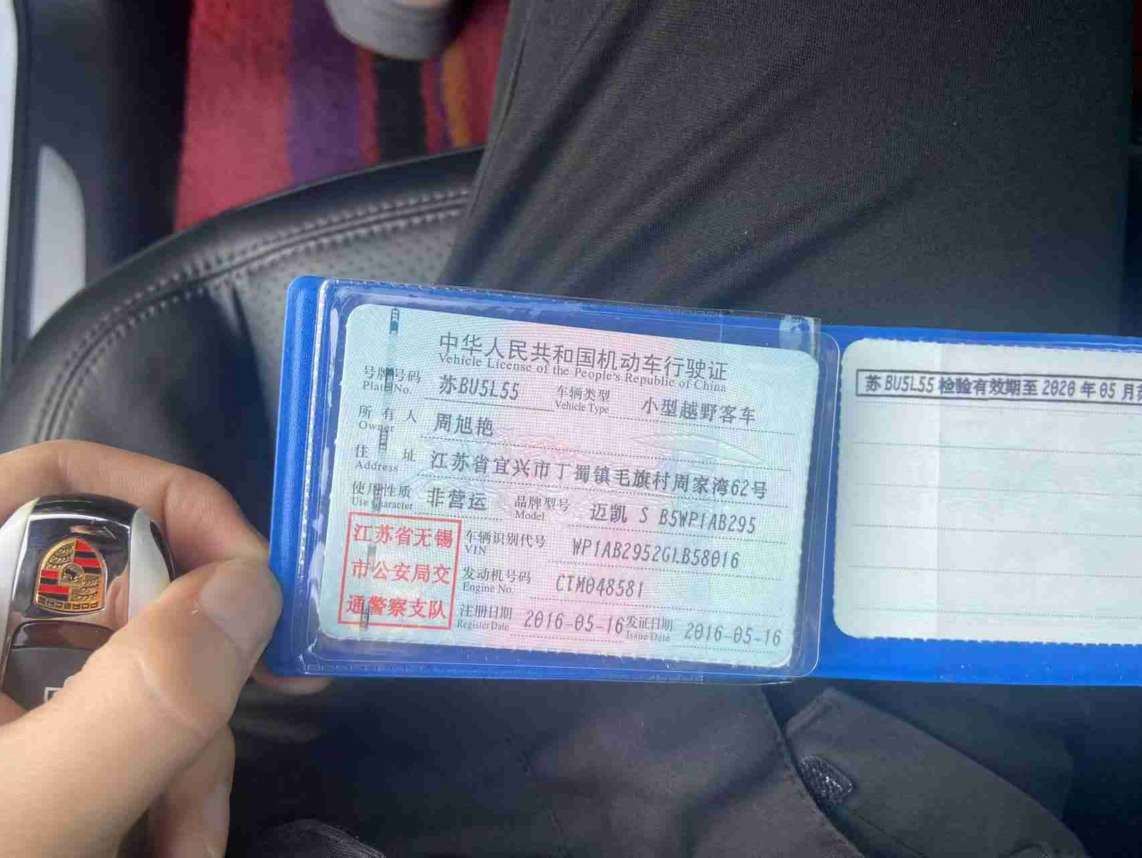 中华人民共和国机动车行驶证
Vehicle License of the People's Republic of China
号牌号码 苏BU5L55 车辆类型 小型越野客车
Plate No. Vehicle Type
所有人 周旭艳
Owner
住址 江苏省宜兴市丁蜀镇毛旗村周家湾62号
Address
使用性质 非营运 品牌型号 迈凯 S B5WP1AB295
Use Character Model
江苏省无锡
市公安局交
通警察支队
车辆识别代号 WP1AB2952GLB58016
VIN
发动机号码 CTM048581
Engine No.
注册日期 2016-05-16 发证日期 2016-05-16
Register Date Issue Date
苏BU5L55 检验有效期至 2020 年 05 月